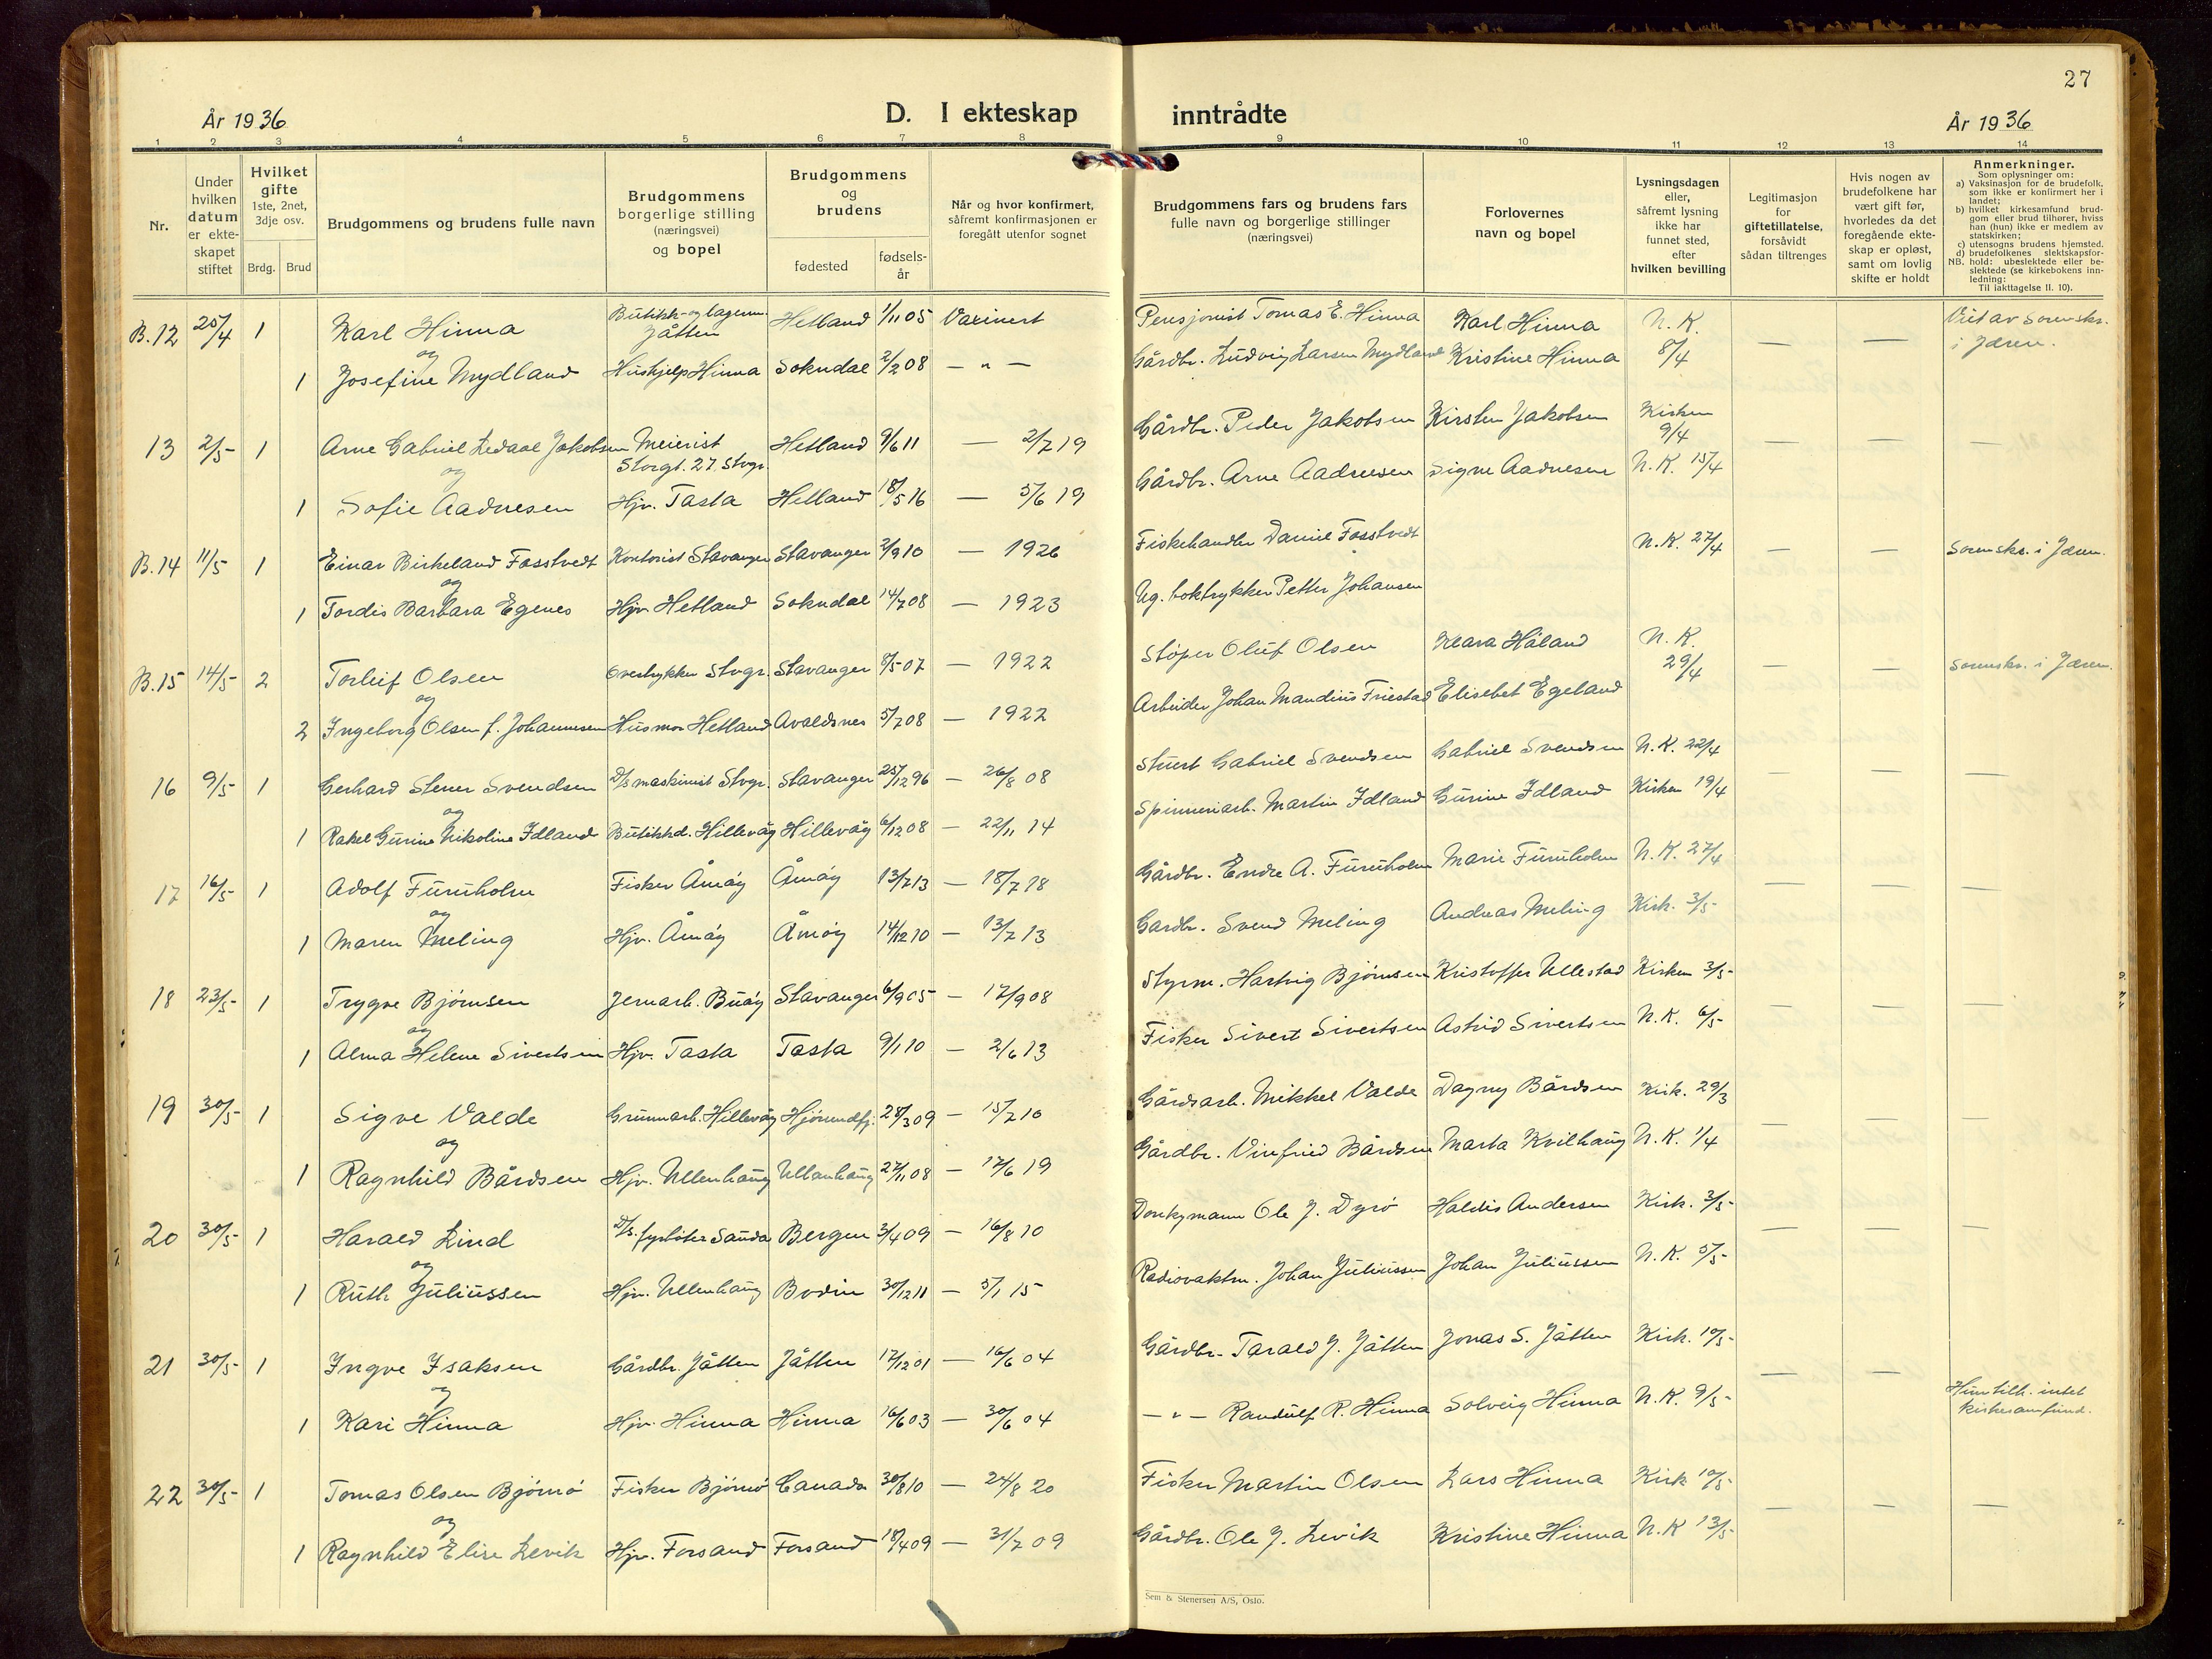 27
År 1936
D. I ekteskap inntrådte
År 1936
1 2 3 4 5 6 7 8 9 10 11 12 13 14
Nr.
Under hvilken datum er ekteskapet stiftet
Hvilket gifte 1ste, 2net, 3dje osv.
Brdg. Brud
Brudgommens og brudens fulle navn
Brudgommens borgerlige stilling (næringsvei) og bopel
Brudgommens og brudens
fødested
fødselsår
Når og hvor konfirmert, såfremt konfirmasjonen er foregått utenfor sognet
Brudgommens fars og brudens fars fulle navn og borgerlige stillinger (næringsvei)
Forlovernes navn og bopel
Lysningsdagen eller, såfremt lysning ikke har funnet sted, efter hvilken bevilling
Legitimasjon for giftetillatelse, forsåvidt sådan tiltrenges
Hvis nogen av brudefolkene har vært gift før, hvorledes da det foregående ekteskap er opløst, samt om lovlig skifte er holdt
Anmerkninger.
Som oplysninger om:
a) Vaksinasjon for de brudefolk, som ikke er konfirmert her i landet;
b) hvilket kirkesamfund brudgom eller brud tilhører, hviss han (hun) ikke er medlem av statskirken;
c) utensogns brudens hjemsted.
d) brudefolkenes slektskapsforhold: ubeslektede eller beslektede (se kirkebokens innledning:
NB.
Til iakttagelse II. 10).
B.12 25/4 1 Karl Hinna Butikk- og lagerm. Jåtten Hetland 1/11 05 Vaxinert Pensjonist Tomas E. Hinna Karl Hinna N. K. 8/4 — — Viet av sorenskr. i Jæren.
og
1 Josefine Mydland Hushjelp Hinna Sokndal 2/2 08 — " — Gårdbr. Ludvig Larsen Mydland Kristine Hinna
13 2/5 1 Arne Gabriel Ledaal Jakobsen Meierist Storgt. 27 Stvgr. Hetland 9/6 11 — 2/7 19 Gårdbr. Peder Jakobsen Kirsten Jakobsen Kirken 9/4 — — —
og
1 Sofie Aadnesen Hjv. Tasta Hetland 18/5 16 — 5/6 19 Gårdbr. Arne Aadnesen Signe Aadnesen N. K. 15/4
B.14 11/5 1 Einar Birkeland Fosstvedt Kontorist Stavanger Stavanger 2/9 10 — 1926 Fiskehandler Daniel Fosstvedt N. K. 27/4 — — Sorenskr. i Jæren.
og
1 Tordis Barbara Egenes Hjv. Hetland Sokndal 14/7 08 — 1923 Ug. boktrykker Petter Johansen
B.15 14/5 2 Torleif Olsen Overtrykker Stvgr. Stavanger 8/5 07 — 1922 Støper Oluf Olsen Klara Håland N. K. 29/4 — — Sorenskr. i Jæren.
og
2 Ingeborg Olsen f. Johannesen Husmor Hetland Avaldsnes 5/7 08 — 1922 Arbeider Johan Mandius Friestad Elisebet Egeland
16 9/5 1 Gerhard Stener Svendsen D/s maskinist Stvgr. Stavanger 25/12 96 — 26/8 08 Stuert Gabriel Svendsen Gabriel Svendsen N. K. 22/4 — — —
og
1 Rakel Gurine Nikoline Idland Butikkd. Hillevåg Hillevåg 6/12 08 — 22/11 14 Spinneriarb. Martin Idland Gurine Idland Kirken 19/4
17 16/5 1 Adolf Furuholm Fisker Åmøy Åmøy 13/7 13 — 18/7 18 Gårdbr. Endre A. Furuholm Marie Furuholm N. K. 27/4 — — —
og
1 Maren Meling Hjv. Åmøy Åmøy 14/12 10 — 13/7 13 Gardbr. Svend Meling Andreas Meling Kirk. 3/5
18 23/5 1 Trygve Bjørnsen Jernarb. Buøy Stavanger 6/9 05 — 17/9 08 Styrm. Hartvig Bjørnsen Kristoffer Ullestad Kirken 3/5 — — —
og
1 Alma Helene Sivertsen Hjv. Tasta Tasta 9/1 10 — 2/6 13 Fisker Sivert Sivertsen Astrid Sivertsen N. K. 6/5
19 30/5 1 Sigve Valde Grunnarb. Hillevåg Hjørundfj. 28/3 09 — 15/7 10 Gårdsarb. Mikkel Valde Dagny Bårdsen Kirk. 29/3 — — —
og
1 Ragnhild Bårdsen Hjv. Ullenhaug Ullenhaug 27/11 08 — 17/6 19 Gårdbr. Vinfried Bårdsen Marta Kvilhaug N. K. 1/4
20 30/5 1 Harald Lind D/s. fyrbøter Sauda Bergen 3/4 09 — 16/8 10 Donkymann Ole J. Dyrø Haldis Andersen Kirk. 3/5 — — —
og
1 Ruth Juliussen Hjv. Ullenhaug Bodin 30/12 11 — 5/1 15 Radiovaktm. Johan Juliussen Johan Juliussen N. K. 5/5
21 30/5 1 Ingve Isaksen Gårdbr. Jåtten Jåtten 17/12 01 — 16/6 04 Gårdbr. Tarald J. Jåtten Jonas S. Jåtten Kirk. 10/5 — — Hun tilh. intet kirkesamfund.
og
1 Kari Hinna Hjv. Hinna Hinna 16/6 03 — 30/6 04 — " — Randulf R. Hinna Solveig Hinna N. K. 9/5
22 30/5 1 Tomas Olsen Bjørnø Fisker Bjørnø Canada 30/8 10 — 24/8 20 Fisker Martin Olsen Lars Hinna Kirk 10/5 — — —
og
1 Ragnhild Elise Levik Hjv. Forsand Forsand 18/4 09 — 31/7 09 Gårdbr. Ole J. Levik Kristine Hinna N. K 13/5
Sem & Stenersen A/S, Oslo.